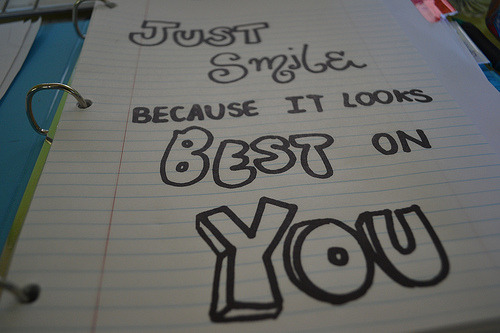 JUST
Smile
BECAUSE IT LOOKS
BEST ON
YOU